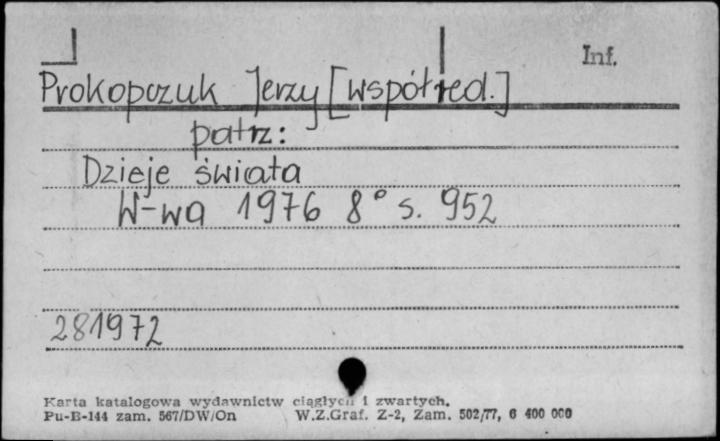 Inf.
Prokopczuk Jerzy [współred.]
patrz:
Dzieje świata
W-wa 1976 8° s. 952
281972
Karta katalogowa wydawnictw ciągłych i zwartych.
Pu-B-144 zam. 567/DW/On W.Z.Graf. Z-2, Zam. 502/77, 6 400 000